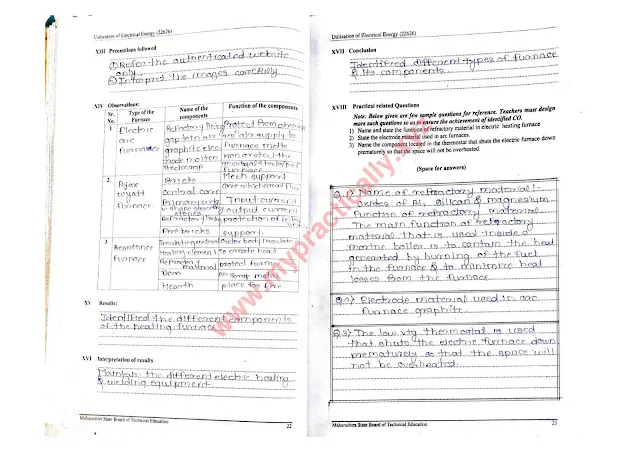 Utilisation of Electrical Energy (22626)
XIII Precautions followed
① Refer the authenticated website
only
② Interpret the images carefully.
XIV Observations:
Sr. No. Type of the Furnace Name of the components Function of the components
1 Electric arc furnace
Refractory lining
graphite elec
trode molten
2. Ajax wyatt furnace
central core
Primary
Input current
output current
Fire bricks support.
3 Resistance furnace
Heating element to create heat
Refractory material protect furnace
Door
Hearth place for fire
XV Results:
Identified the different components
of the heating furnace
XVI Interpretation of results
Maintain the different electric heating
& welding equipment
Maharashtra State Board of Technical Education
22
Utilisation of Electrical Energy (22626)
XVII Conclusion
Identified different types of furnace
& its components
XVIII Practical related Questions
Note: Below given are few sample questions for reference. Teachers must design
more such questions so as to ensure the achievement of identified CO.
1) Name and state the function of refractory material in electric heating furnace
2) State the electrode material used in arc furnaces.
3) Name the component located in the thermostat that shuts the electric furnace down
prematurely so that the space will not be overheated.
(Space for answers)
Q.1) Name of refractory material:
oxides of Al, silicon & magnesium
Function of refractory material
The main function of refractory
material that is used inside a
marine boiler is to contain the heat
generated by burning of the fuel
in the furnace & to minimize heat
losses from the furnace.
Q.2) Electrode material used in arc
furnace graphite.
Q.3) The low vtg thermostat is used
that shuts the electric furnace down
prematurely so that the space will
not be overheated.
Maharashtra State Board of Technical Education
23